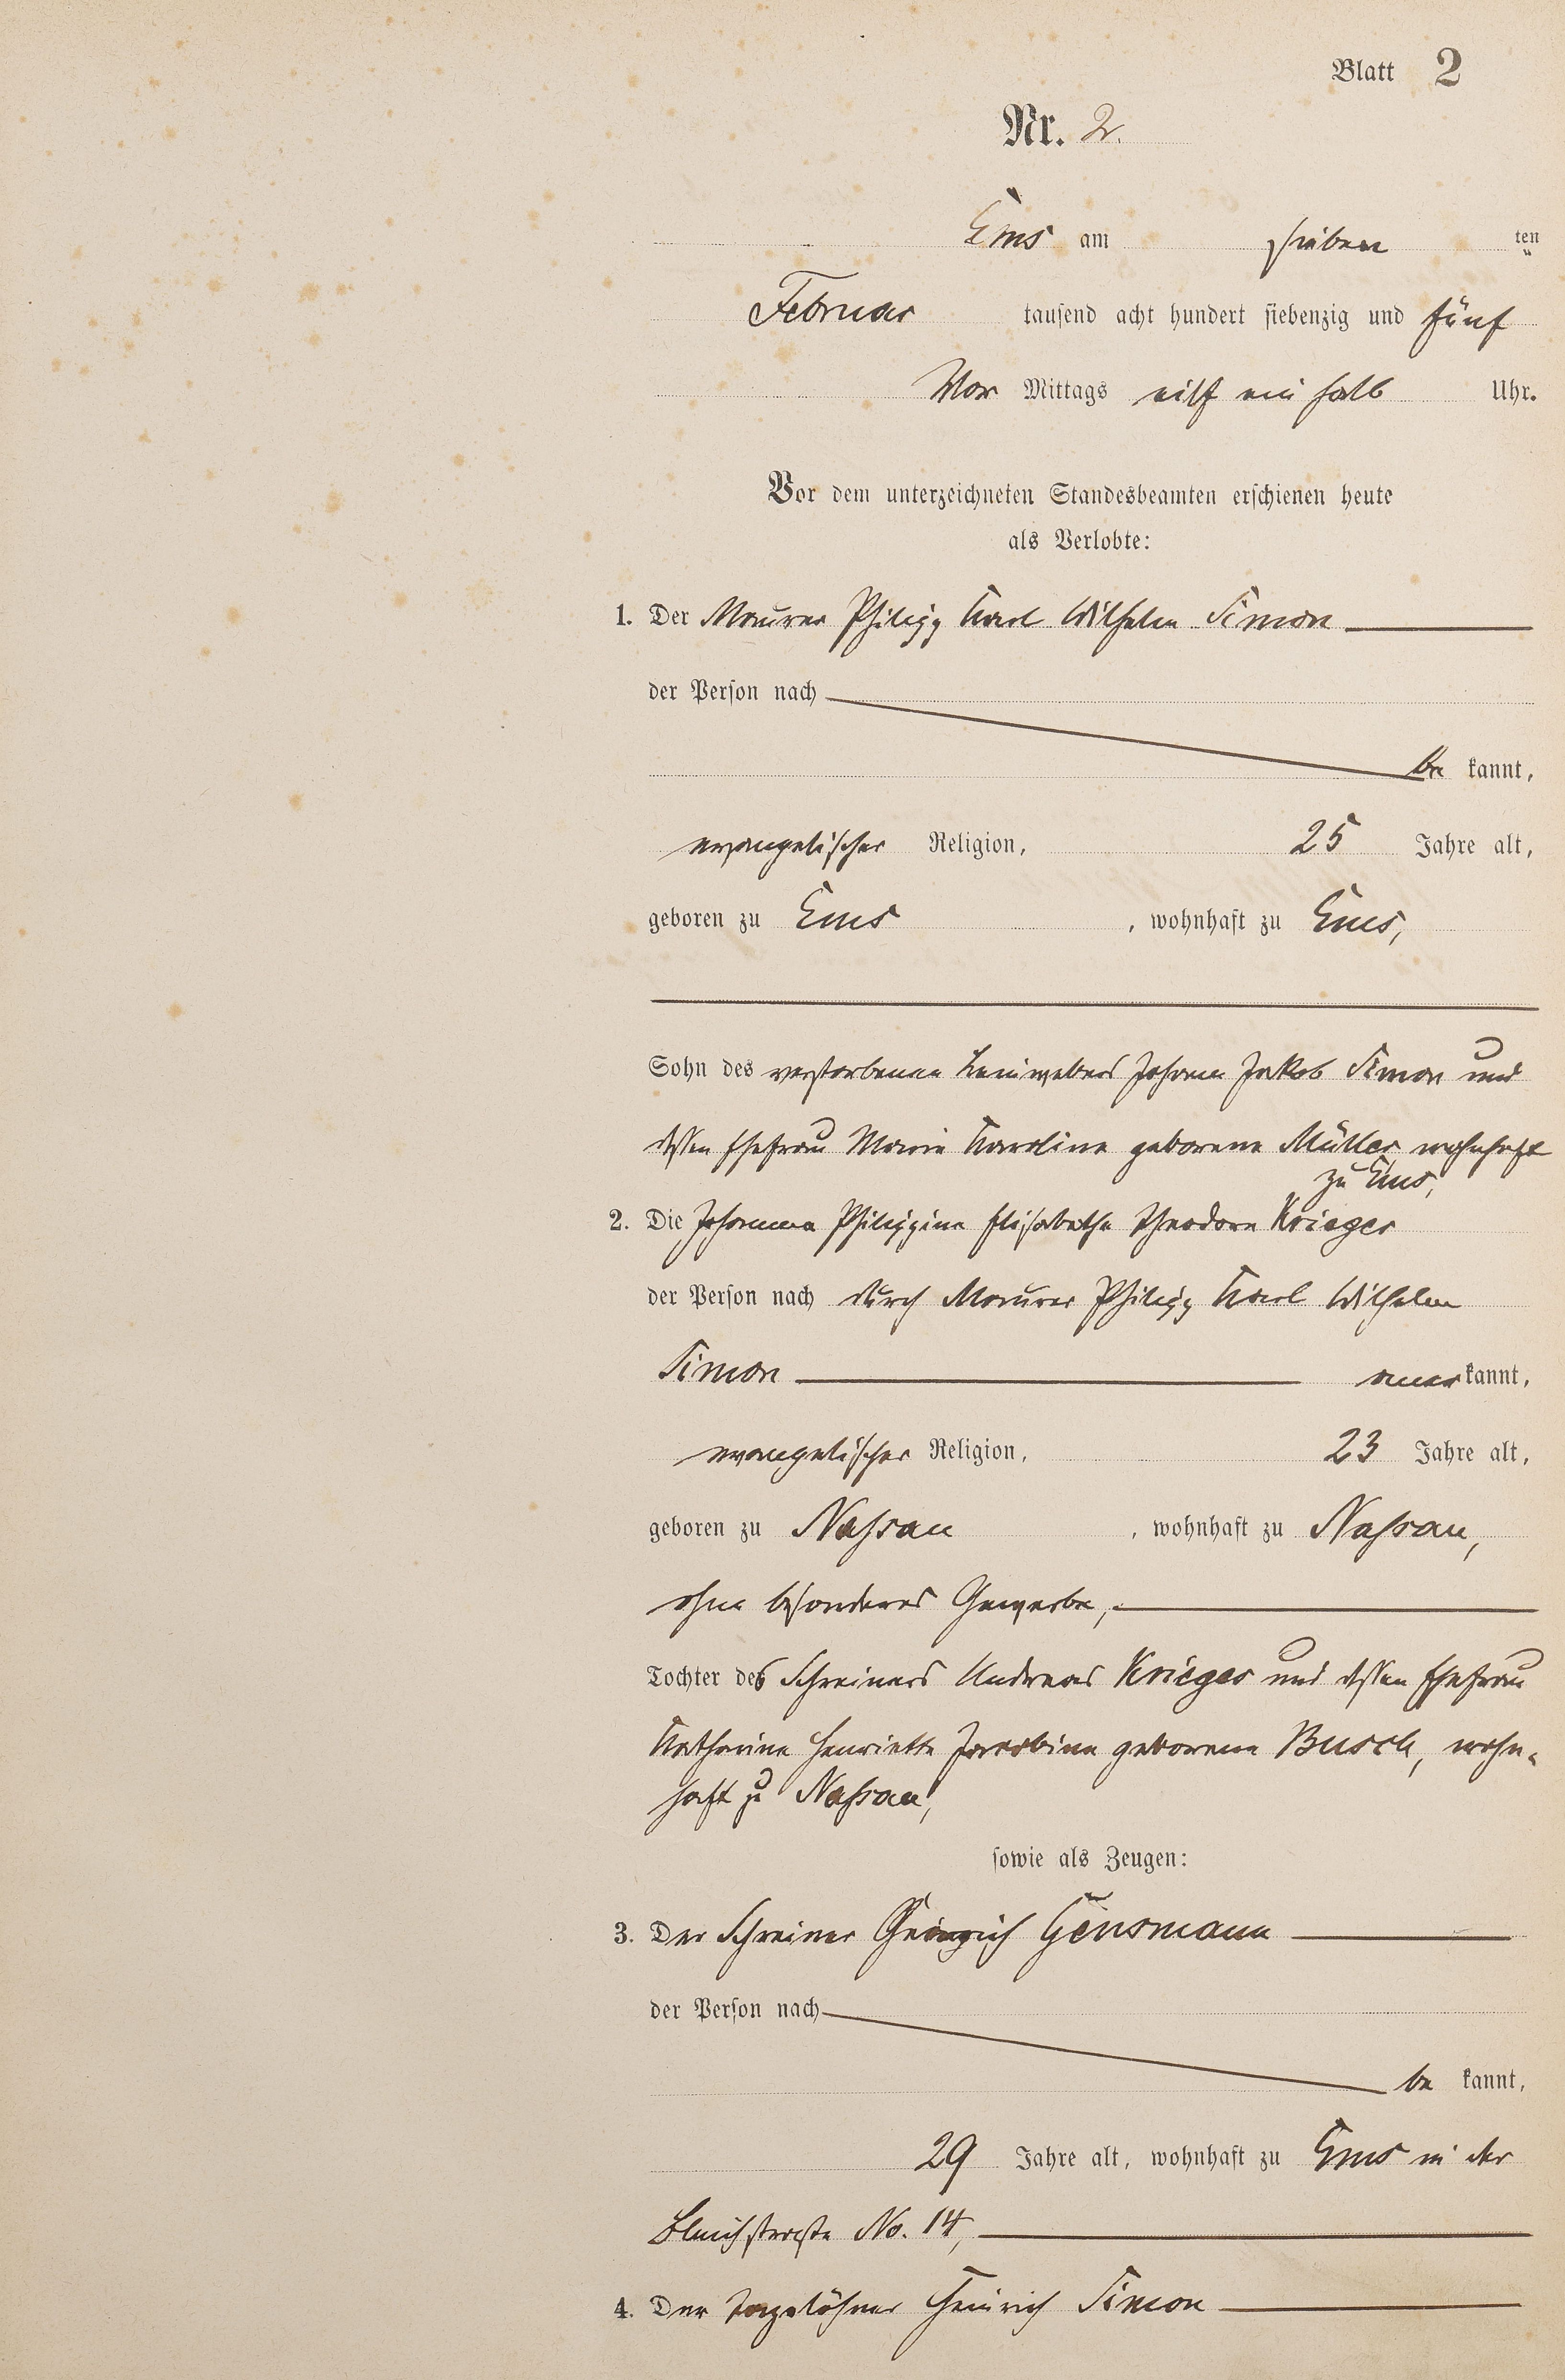 Blatt 2
Nr. 2.
Ems am sieben ten
Februar tausend acht hundert siebenzig und fünf
Vor Mittags eilf ein halb Uhr.
Vor dem unterzeichneten Standesbeamten erschienen heute
als Verlobte:
1. Der Maurer Philipp Karl Wilhelm Simon
der Person nach
be kannt,
evangelischer Religion, 25 Jahre alt,
geboren zu Ems, wohnhaft zu Ems,
Sohn des verstorbenen Leinwebers Johann Jakob Simon und
dessen Ehefrau Marie Karoline geborene Müller wohnhaft
zu Ems,
2. Die Johanna Philippine Elisabethe Theodore Krieger
der Person nach durch Maurer Philipp Karl Wilhelm
Simon anerkannt,
evangelischer Religion, 23 Jahre alt,
geboren zu Nassau, wohnhaft zu Nassau,
ohne besonderes Gewerbe,
Tochter des Schreiners Andreas Krieger und dessen Ehefrau
Katharine Henriette Jacobine geborene Busch, wohn-
haft zu Nassau,
sowie als Zeugen:
3. Der Schreiner Heinrich Gensmann
der Person nach
be kannt,
29 Jahre alt, wohnhaft zu Ems in der
Bleichstraße No. 14,
4. Der Tagelöhner Heinrich Simon